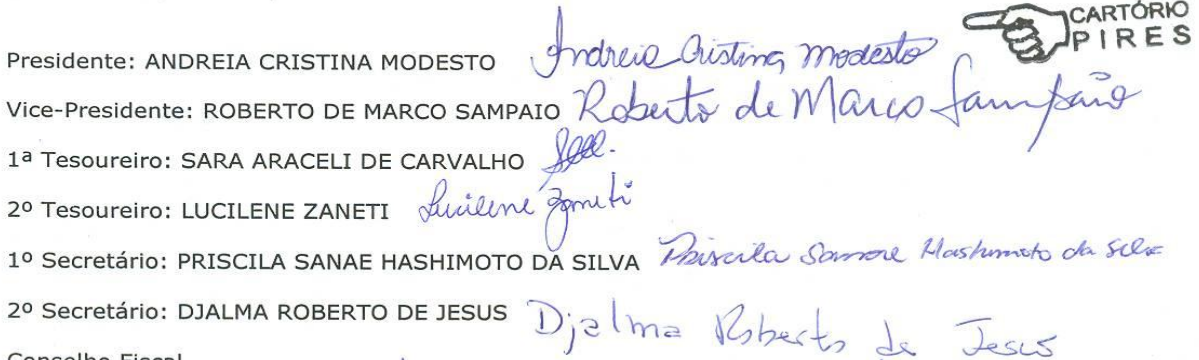 CARTÓRIO
PIRES
Presidente: ANDREIA CRISTINA MODESTO Andreia Cristina Modesto
Vice-Presidente: ROBERTO DE MARCO SAMPAIO Roberto de Marco Sampaio
1ª Tesoureiro: SARA ARACELI DE CARVALHO
2º Tesoureiro: LUCILENE ZANETI Lucilene Zaneti
1º Secretário: PRISCILA SANAE HASHIMOTO DA SILVA Priscila Sanae Hashimoto da Silva
2º Secretário: DJALMA ROBERTO DE JESUS Djalma Roberto de Jesus
Conselho Fiscal